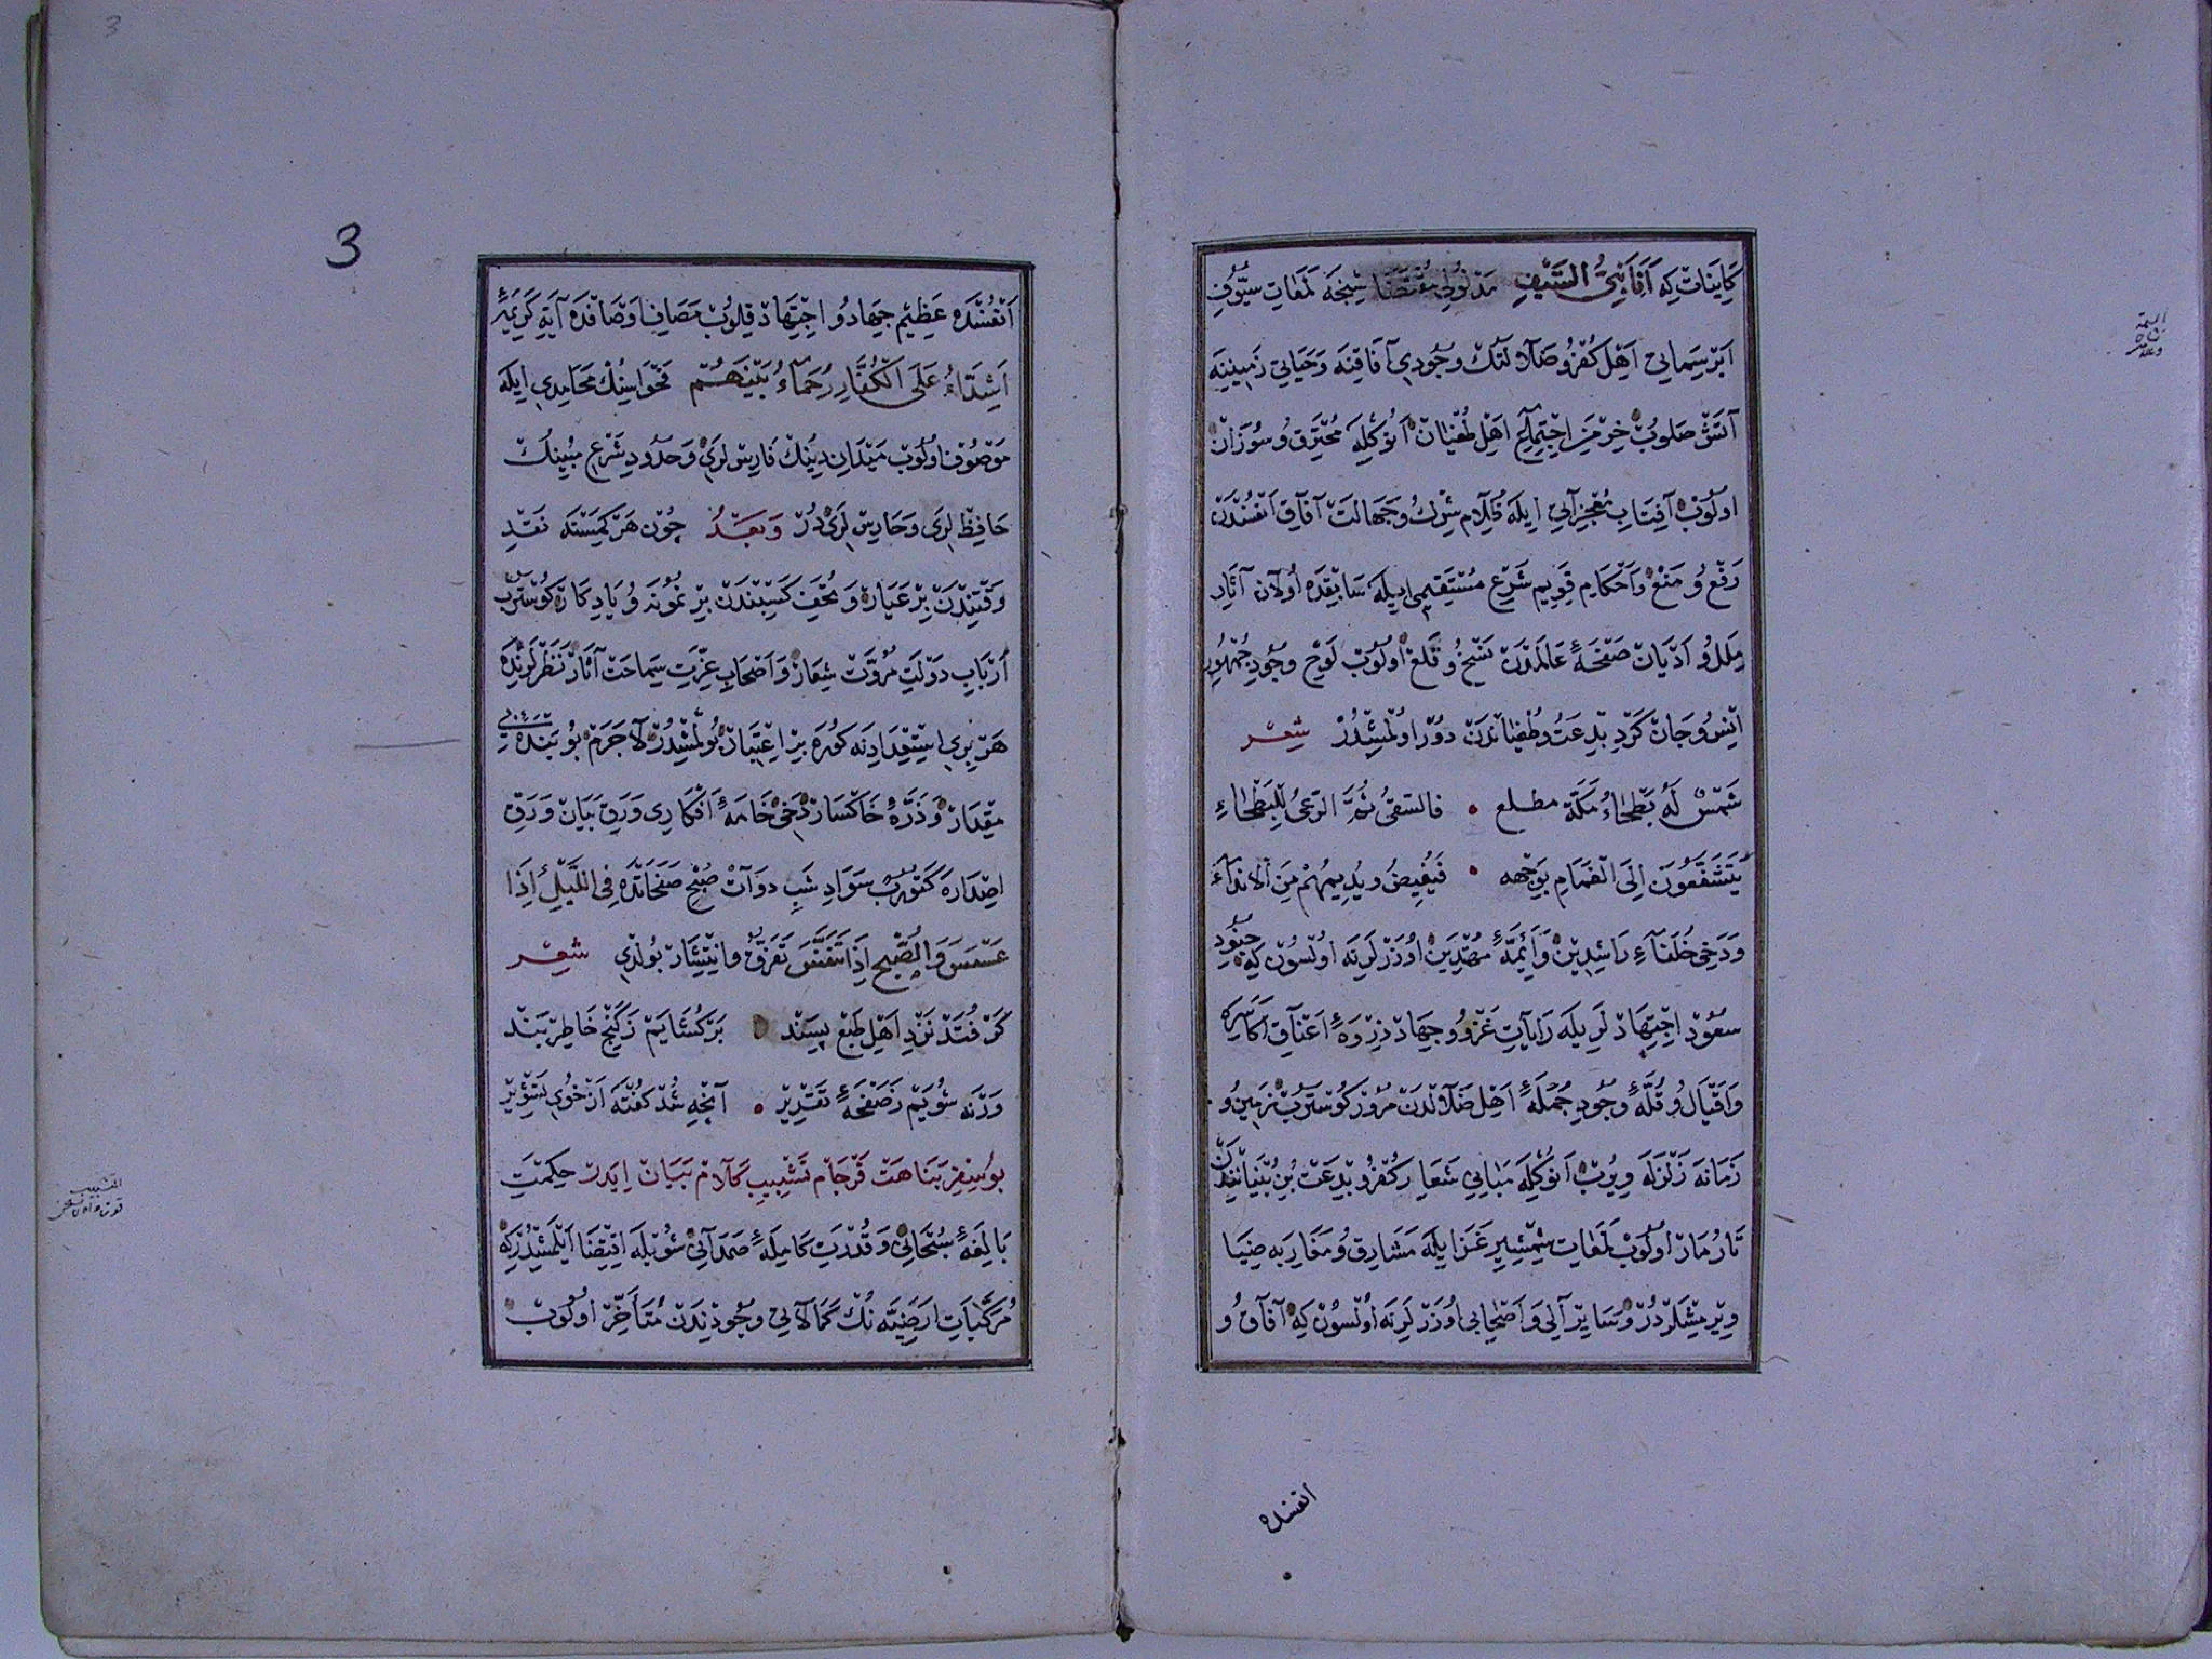 كَايِنَاتْ كِه اَنَا نَبِيُّ السَّيْفِ مَدْلُولِي مُقْتَضَاسِنْجَه لَمَعَاتِ سُيُوفِ
اَبَرْسِيمَايِي اَهْلِ كُفْرُ و ضَلَالَتُكْ وُجُودِي آفَاقِنَه وَحَيَاتِي زَمِينِينَه
آتَشْ صَلُوبْ خِرْمَنِ اِجْتِمَاعِ اَهْلِ طُغْيَانْ اَنُوكْلَه مُحْتَرِقْ وُ سُوزَانْ
اولُوبْ آفِتَابِ مُعْجِزَاتِي ايلَه ظَلَامِ شِرْكُ و جَهَالَتْ آفَاقِ اَنْفُسْدَنْ
رَفْعُ وُ مَنْعْ وَ اَحْكَامِ قَوِيمِ شَرْعِ مُسْتَقِيمِي ايلَه سَابِقَدَه اولَانْ آثَارِ
مِلَلُ وُ اَدْيَانْ صَفْحَهٔ عَالَمْدَنْ نَسْخُ و قَلْعْ اولُوبْ لَوْحِ وُجُودِ جُمْهُورِ
اِنْسُ وُ جَانْ كَرْدِ بِدْعَتُ و طُغْيَانْدَنْ دُورْ اولْمِشْدُرْ شِعْر
شَمْسٌ لَهُ بَطْحَاءُ مَكَّة مطلع • فالسقىُ ثُمَّ الرَّعْىُ لِلْبَطْحَاءِ
يَتَشَفَّعُونَ اِلَى الْغَمَامِ بِوَجْهِه • فَيُفِيضُ وَيُدِيمُهُمْ مِنَ الْاَنْدَاءِ
وَدَخِي خُلَفَآءِ رَاشِدِينْ وَ اَئِمَّهٔ مُهْتَدِينْ اوزَرْلَرِنَه اولْسُونْ كِه جُنُودِ
سُعُودْ اِجْتِهَادْلَرِيلَه رَايَاتِ غَزْوُ و جِهَادْ ذِرْوَهٔ اَعْنَاقِ اَكَاسِرَه
وَاَقْيَالُ وُ قُلَّهٔ وُجُودِ جُمْلَهٔ اَهْلِ ضَلَالْدَنْ مُرُورْ كُوسْتَرُبْ زَمِينُ وُ
زَمَانَه زَلْزَلَه وِيرُبْ اَنُوكْلَه مَبَانِي شَعَايِرِ كُفْرُ و بِدْعَتْ بُنِ بُنْيَانِنْدَنْ
تَارُ مَارْ اولُوبْ لَمَعَاتِ شِمْشِيرِ غَزَايلَه مَشَارِقُ وُ مَغَارِبَه ضِيَا
وِيرْمِشْلَرْدُرْ وُ سَايِرْ آلِي وَ اَصْحَابِي اوزَرْلَرِنَه اولْسُونْ كِه آفَاقُ وُ
انفسده
3
3
اَنْفُسْدَه عَظِيمْ جِهَادُ و اِجْتِهَادْ قِلُوبْ مَصَافِ اَوْصَافْدَه آيَهٔ كَرِيمَهٔ
اَشِدَّاءُ عَلَى الْكُفَّارِ رُحَمَآءُ بَيْنَهُمْ فَحْوَاسِنُكْ مَحَامِدِي ايلَه
مَوْصُوفْ اولُوبْ مَيْدَانِ دِينُكْ فَارِسْلَرِي وَحُدُودِ شَرْعِ مُبِينُكْ
حَافِظْلَرِي وَحَارِسْلَرِي دُرْ وَبَعْدُ چُونْ هَرْ كِمْسَنَه نَقْدِ
وَقْتِنْدَنْ بِرْ عَيَارَه وَ تُحَفِ كَسْبِنْدَنْ بِرْ نُمُونَه وُ يَادِكَارَه كُوسْتَرُبْ
اَرْبَابِ دَوْلَتِ مُرُوَّتْ شِعَارْ وَ اَصْحَابِ عِزَّتِ سَمَاحَتْ آثَارْ نَظَرْلَرِنْدَه
هَرْ بِرِي اِسْتِعْدَادِنَه كُورَه بِرْ اِعْتِبَارْ بُولْمِشْدُرْ لَاجَرَمْ بُو بَنْدَهٔ بِي
مِقْدَارْ وُ ذَرَّهٔ خَاكْسَارْ دَخِي خَامَهٔ اَفْكَارِي وَرَقِ بَيَانْ وَرَقِ
اِصْدَارَه كَتُورُبْ سَوَادِ شَبِ دَوَاتْ صُبْحِ صَفَحَاتْدَه فِي اللَّيْلِ اِذَا
عَسْعَسَ وَالصُّبْحِ اِذَا تَنَفَّسَ تَفَرُّقُ و اِنْتِشَارْ بُولْدِي شِعْر
كَرْ فُتَدْ نَزْدِ اَهْلِ طَبْعْ پَسَنْد • بَرْكُشَايَمْ زِ كَنْجِ خَاطِرْ بَنْد
وَرْنَه شُويَمْ زِ صَفْحَهٔ تَقْدِيرْ • آنْچِه شُدْ كُفْتَه اَزْ خُوىِ تَشْوِيرْ
بُو سِفِرِ بَنَاهَتْ فَرْجَامْ تَشْبِيبِ كَلَامْ بَيَانْ اِيدَرْ حِكْمَتِ
بَالِغَهٔ سُبْحَانِي وَ قُدْرَتِ كَامِلَهٔ صَمَدَانِي شُويْلَه اِقْتِضَا اَيْلَمِشْدُرْ كِه
مُرَكَّبَاتِ اَرْضِيَّه نُكْ كَمَالَاتِي وُجُودِنْدَنْ مُتَأَخِّرْ اولُوبْ